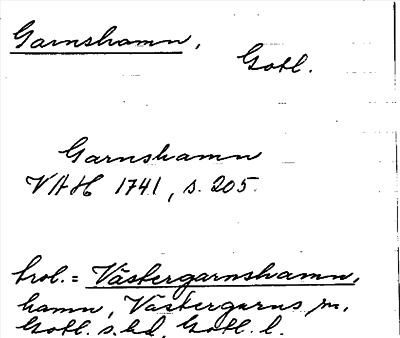 Garnshamn,
Gotl.
Garnshamn
VAH 1741, s. 205.
trol. = Västergarnshamn,
hamn, Västergarns sn,
Gotl. s. hd, Gotl. l.